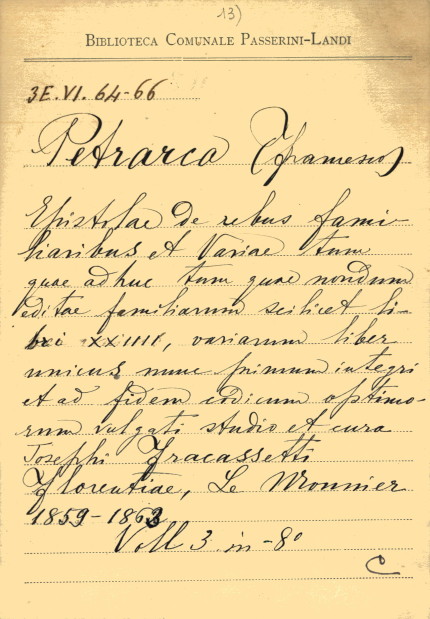 13)
BIBLIOTECA COMUNALE PASSERINI-LANDI
3E.VI.64-66
Petrarca (Francesco)
Epistolae de rebus fami-
liaribus et Variae tum
quae adhuc tum quae nondum
editae familiarum scilicet li-
bri XXIIII, variarum liber
unicus nunc primum integri
et ad fidem codicum optimo-
rum vulgati studio et cura
Josephi Fracassetti
Florentiae, Le Monnier
1859-1863
Voll 3 in-8°
C